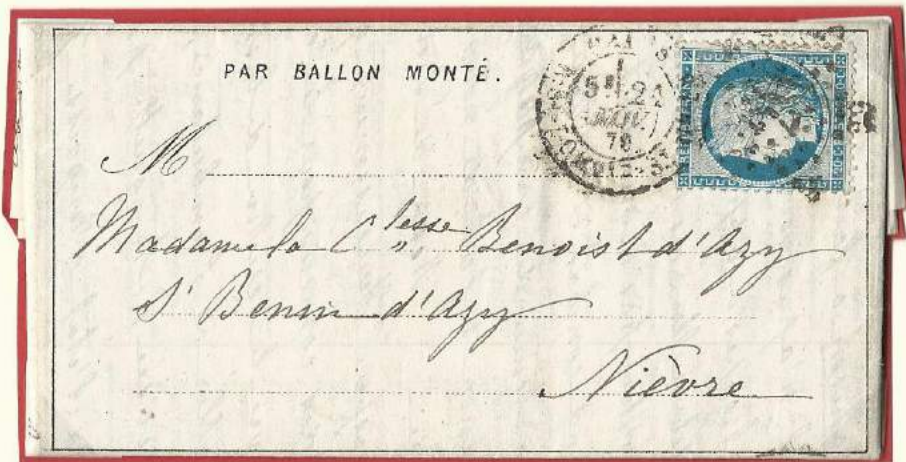 PAR BALLON MONTÉ.
5E 24
NOV.
70
M
Madame la Ctesse Benoist d'Azy
St Benin d'Azy
Nièvre